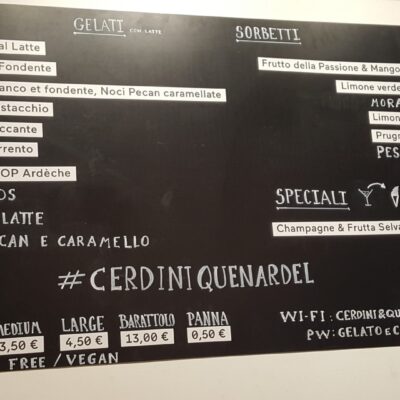 GELATI CON LATTE
al Latte
Fondente
anco et fondente, Noci Pecan caramellate
stacchio
ccante
rrento
OP Ardèche
OS
LATTE
CAN E CARAMELLO
SORBETTI
Frutto della Passione & Mango
Limone verde
MORA
Limon
Prugn
PES
SPECIALI
Champagne & Frutta Selva
#CERDINIQUENARDEL
MEDIUM LARGE BARATTOLO PANNA
3,50 € 4,50 € 13,00 € 0,50 €
FREE / VEGAN
WI-FI: CERDINI&QU
PW: GELATO E C